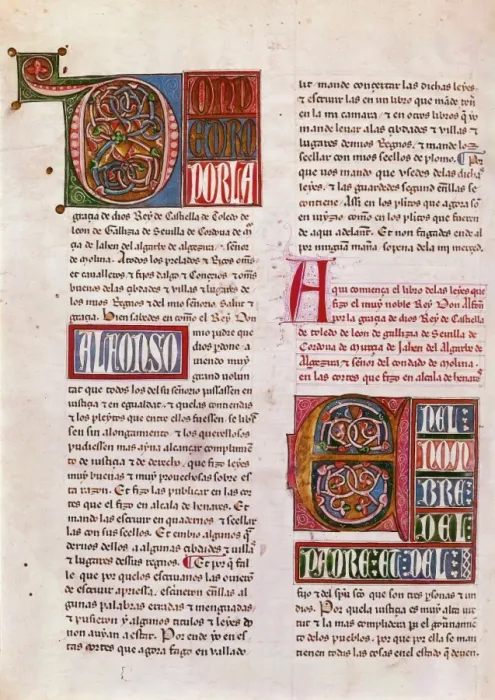 DON
PEDRO
PORLA
graçia de dios Rey de Castiella de Toledo de
leon de Gallizia de Seuilla de Cordoua de
çia de Jahen del algarbe de algezira. z señor
de molina. A todos los prelados z Ricos
z caualleros z fijos dalgo z Conçeios z
buenos delas çibdades z villas z lugares de
los mios Regnos z del mio señorio. Salut z
graçia. Bien sabedes en como el Rey Don
ALFONSO
mio padre que
dios perdone. a
uiendo muy
grand uolun
tat que todos los del su señorio passassen en
iustiçia z en egualdat. z quelas contiendas
z los pleytos que entre ellos fuessen. se
sen sin alongamiento z los querellosos
pudiessen mas ayna alcançar
to de iustiçia z de derecho. que fizo leyes
muy buenas z muy prouechosas sobre es
ta razon. Et fizo las publicar en las cor
tes que el fizo en alcala de henares. Et
mando las escriuir en quadernos z seellar
las con sus seellos. Et enbio algunos
dernos dellos. a algunas çibdades z
z lugares desus regnos. Et por que
le que por quelos escriuanos las ouieron
de escriuir apriessa. escriuieron enellas al
gunas palabras erradas z menguadas
z pusieron y algunos titulos z leyes do
non auyan a estar. Por ende yo en es
tas cortes que agora fago en vallado
lit mande conçertar las dichas leyes.
z escriuir las en un libro que mande
en la mi camara z en otros libros que yo
mande leuar alas çibdades z villas z
lugares delos mios Regnos. z mande los
seellar con mios seellos de plomo. Por
que uos mando que usedes delas dichas
leyes. z las guardedes segund enellas se
contiene. Assi en los pleitos que agora son
en iuyzio como en los pleitos que fueren
de aqui adelant. Et non fagades ende al
por ninguna manera sopena dela mi merçed.
Aqui comiença el libro delas leyes que
fizo el muy noble Rey Don Alfonso
por la graçia de dios Rey de Castiella
de toledo de leon de gallizia de Seuilla de
Cordoua de murçia de Jahen del Algarbe de
Algezira z señor del condado de molina.
en las cortes que fizo en alcala de henares
EN EL
NOM
BRE
DEL
PADRE ET DEL
fijo z del spiritu sancto que son tres personas z un
dios. Por quela iustiçia es muy alta uir
tut z la mas complidera pa el
to delos pueblos. por que por ella se man
tienen todas las cosas enel estado que deuen.